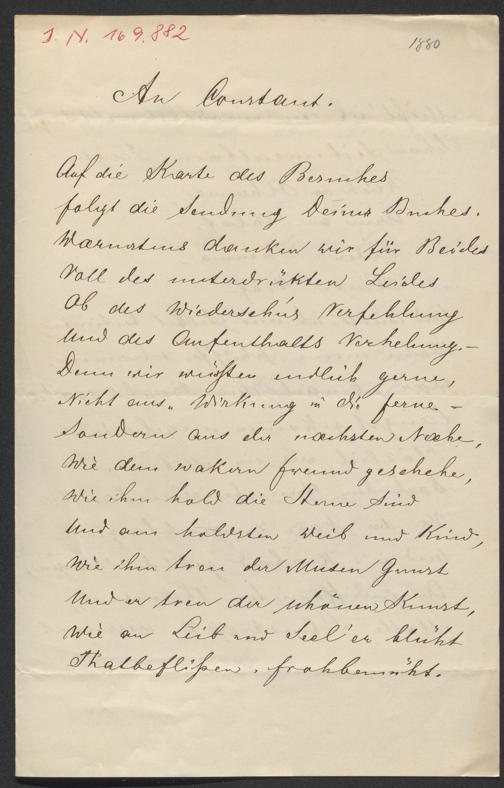 I. N. 169.882
1880
An Constant.
Auf die Karte des Besuches
folgt die Sendung Deines Buches.
Wärmstens danken wir für Beides
Voll des unterdrückten Leides
Ob des Wiederseh'ns Verfehlung
Und des Aufenthalts Verhelung. –
Denn wir wüßten endlich gerne,
Nicht aus „Wirkung in die ferne“ –
Sondern aus der nächsten Naehe,
Wie dem wakern freund geschehe,
Wie ihm hold die Sterne sind
Und am holdsten Weib und Kind,
Wie ihm treu der Musen Gunst
Und er treu der schönen Kunst,
Wie an Leib und Seel' er blüht
Thatbeflißen, frohbemüht.